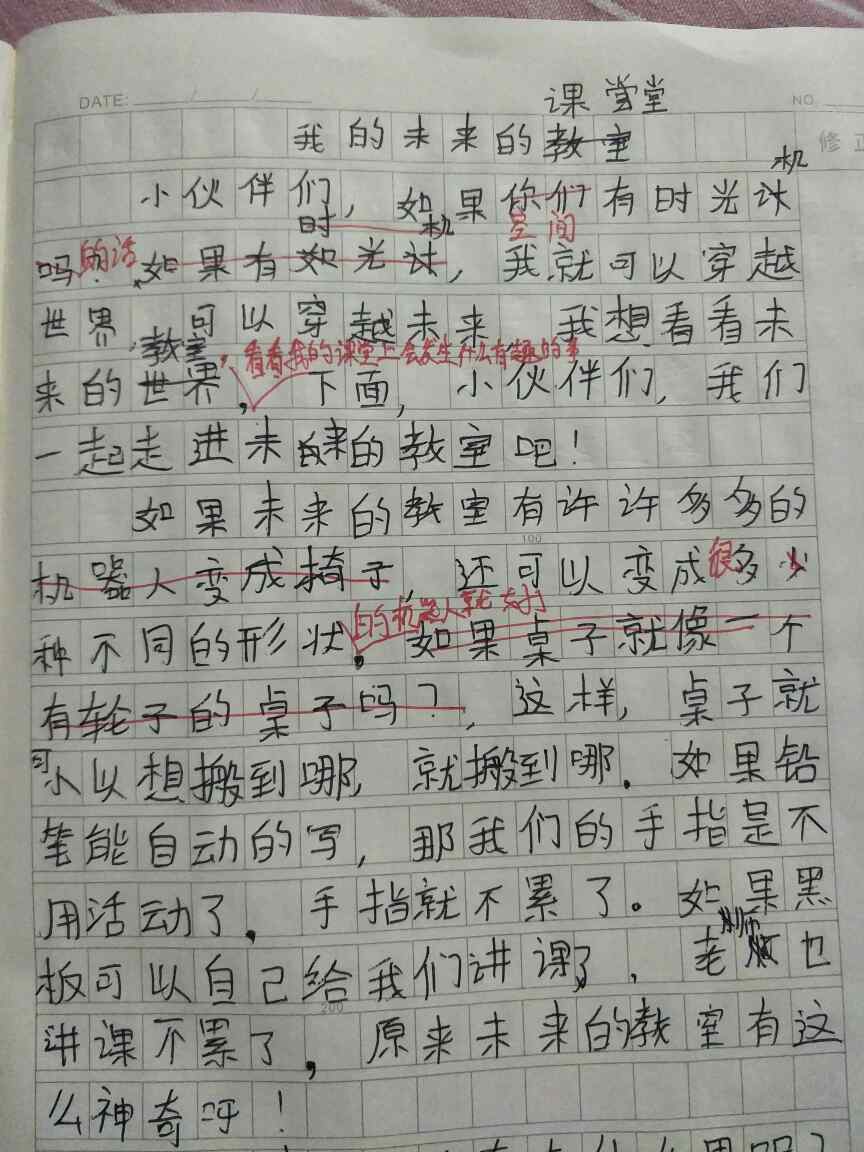 DATE: / / NO.
课 堂
我的未来的教室
修正
机
小伙伴们，如果你们有时光计
时 机 空间
吗？的话，如果有如光计，我就可以穿越
世界，可以穿越未来，我想看看未
教室，看看我的课堂上会发生什么有趣的事
来的世界，下面，小伙伴们，我们
一起走进未来的教室吧！
如果未来的教室有许许多多的
机器人变成椅子，还可以变成很多少
的机器人就太好了
种不同的形状。如果桌子就像一个
有轮子的桌子吗？，这样，桌子就
可
小以想搬到哪，就搬到哪．如果铅
笔能自动的写，那我们的手指是不
用活动了．手指就不累了。如果黑
师
板可以自己给我们讲课了，老也
200
讲课不累了，原来未来的教室有这
么神奇呀！
100